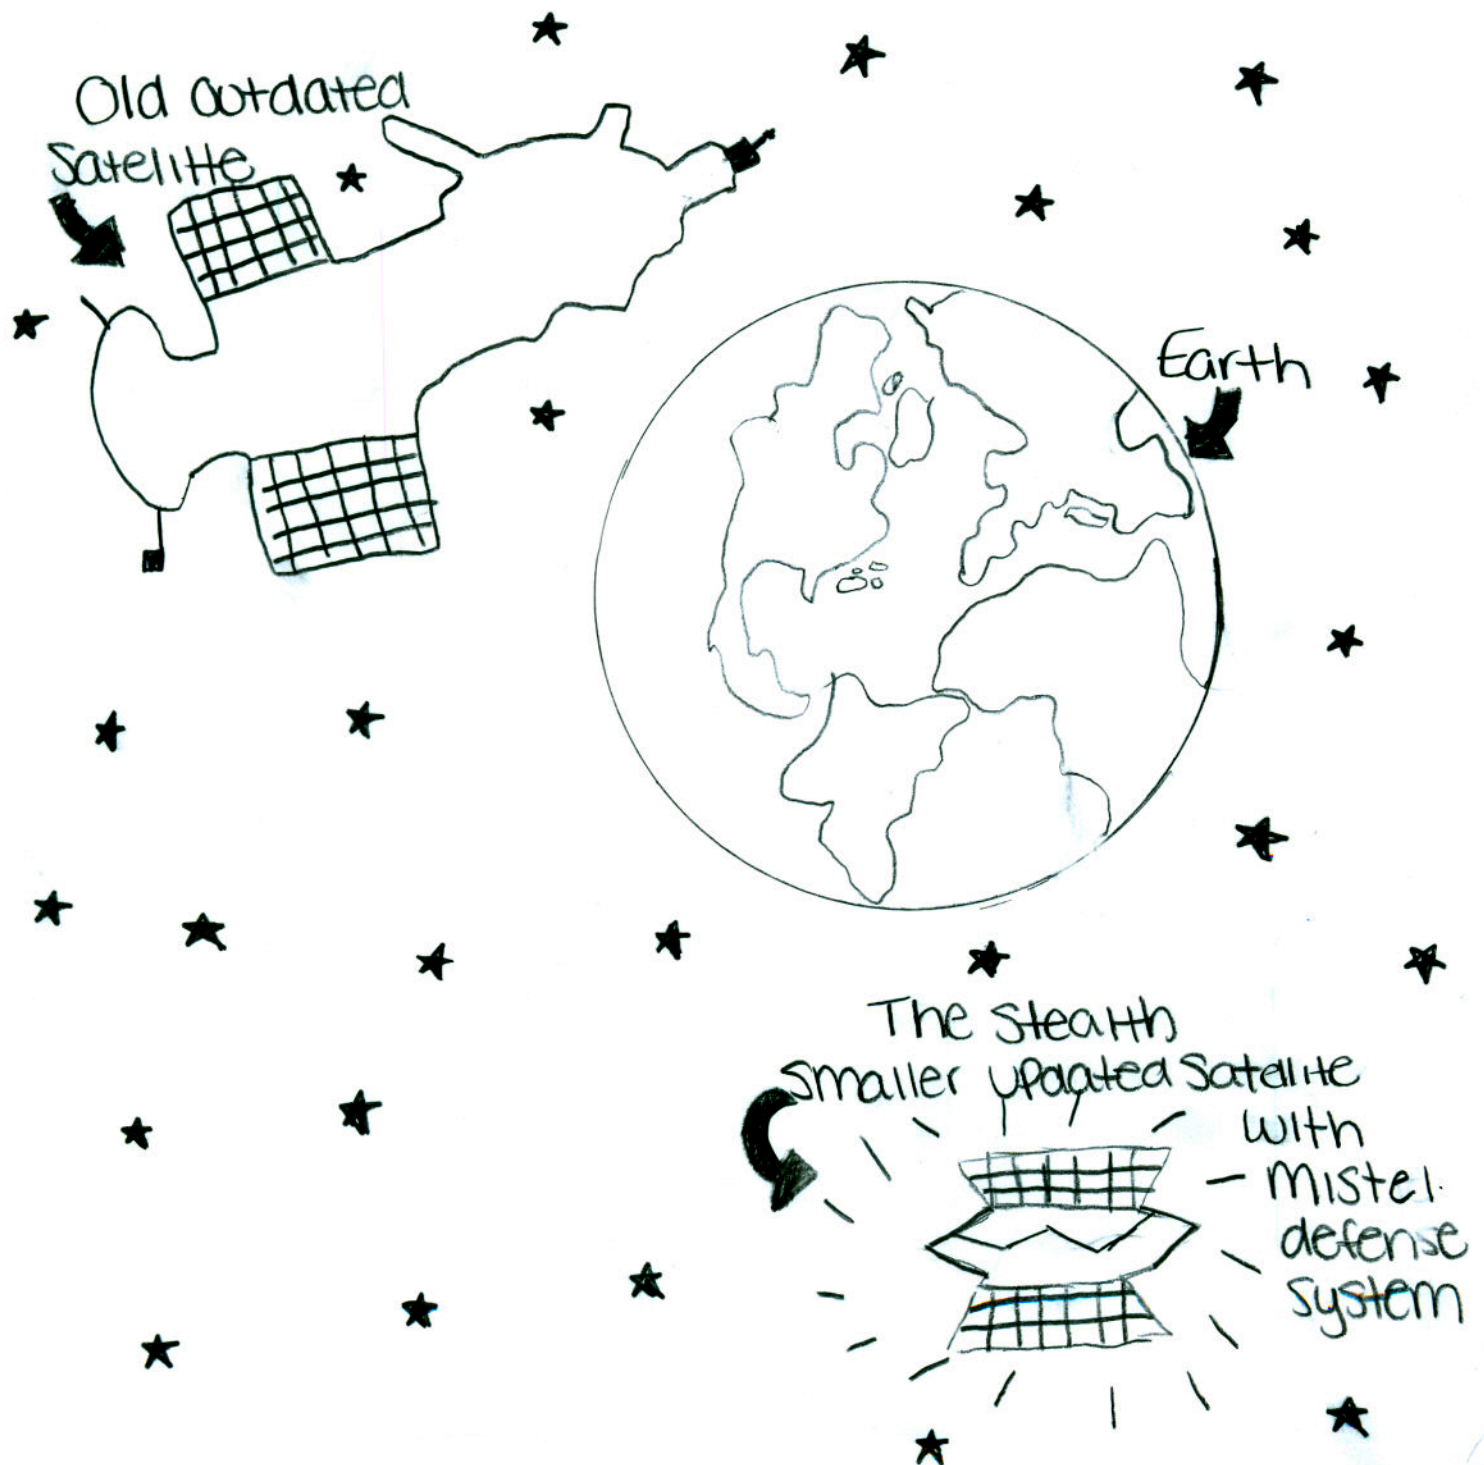 Old outdated
Satelitte
Earth
The Stealth
Smaller updated Satellite
with
Mistel
defense
system